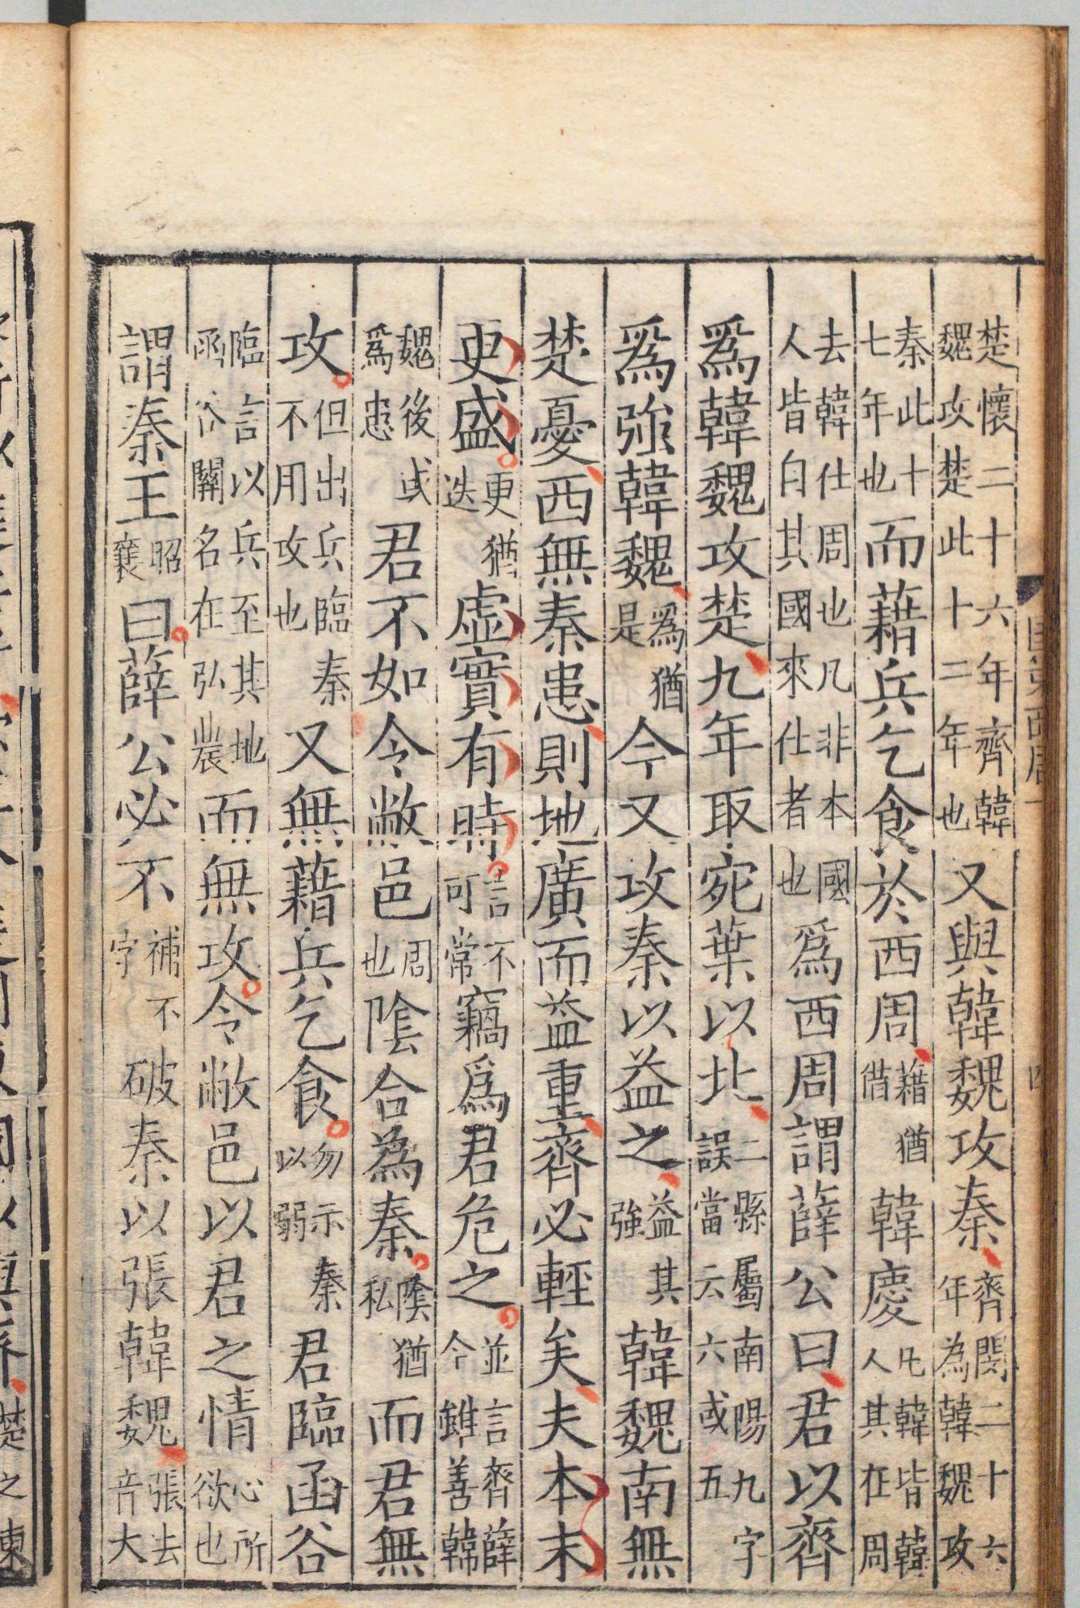 楚懷二十六年齊韓魏攻楚此十二年也又與韓魏攻秦齊閔二十六年為韓魏攻
秦此十七年也而藉兵乞食於西周藉猶借韓慶凡韓皆韓人其在周
去韓仕周也凡非本國人皆自其國來仕者也爲西周謂薛公曰君以齊
爲韓魏攻楚九年取宛葉以北二縣屬南陽九字誤當云六或五
爲強韓魏爲猶是今又攻秦以益之益其強韓魏南無
楚憂西無秦患則地廣而益重齊必輕矣夫本末
更盛更猶迭虛實有時言不可常竊爲君危之並言齊薛今雖善韓
魏後或爲患君不如令敝邑周也陰合為秦陰猶私而君無
攻但出兵臨秦不用攻也又無藉兵乞食勿示秦以弱君臨函谷
臨言以兵至其地函谷關名在弘農而無攻令敝邑以君之情心所欲也
謂秦王昭襄曰薛公必不補不字破秦以張韓魏張去音大